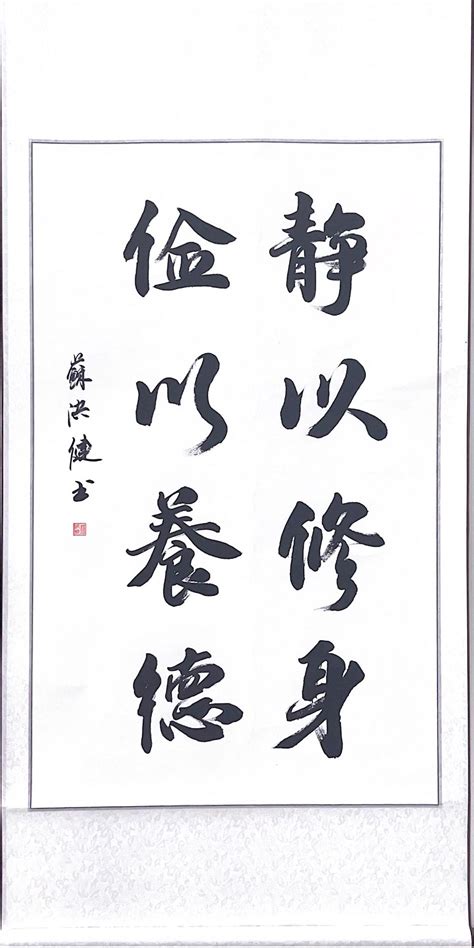 静以修身
俭以養德
蘇洪健书